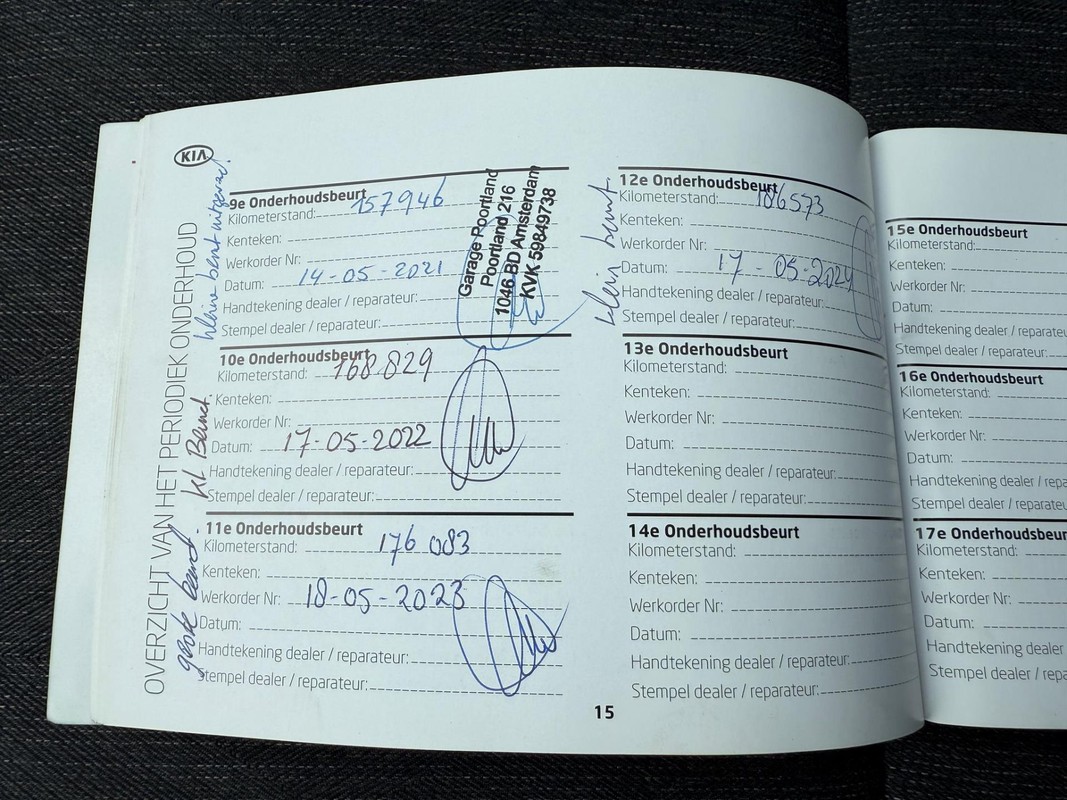 KIA
OVERZICHT VAN HET PERIODIEK ONDERHOUD
9e Onderhoudsbeurt
Kilometerstand: 157946
Kenteken:
Werkorder Nr:
Datum: 14-05-2021
Handtekening dealer / reparateur:
Stempel dealer / reparateur:
kleine beurt
Garage Poortland
Poortland 216
1046 BD Amsterdam
KVK 59849738
10e Onderhoudsbeurt
Kilometerstand: 168.829
Kenteken:
Werkorder Nr:
Datum: 17-05-2022
Handtekening dealer / reparateur:
Stempel dealer / reparateur:
kl. Beurt.
11e Onderhoudsbeurt
Kilometerstand: 176 083
Kenteken:
Werkorder Nr: 18-05-2023
Datum:
Handtekening dealer / reparateur:
Stempel dealer / reparateur:
grote beurt.
12e Onderhoudsbeurt
Kilometerstand: 186573
Kenteken:
Werkorder Nr:
Datum: 17-05-2024
Handtekening dealer / reparateur:
Stempel dealer / reparateur:
klein beurt.
13e Onderhoudsbeurt
Kilometerstand:
Kenteken:
Werkorder Nr:
Datum:
Handtekening dealer / reparateur:
Stempel dealer / reparateur:
14e Onderhoudsbeurt
Kilometerstand:
Kenteken:
Werkorder Nr:
Datum:
Handtekening dealer / reparateur:
Stempel dealer / reparateur:
15
15e Onderhoudsbeurt
Kilometerstand:
Kenteken:
Werkorder Nr:
Datum:
Handtekening dealer / reparateu
Stempel dealer / reparateur:
16e Onderhoudsbeurt
Kilometerstand:
Kenteken:
Werkorder Nr:
Datum:
Handtekening dealer / repa
Stempel dealer / reparateu
17e Onderhoudsbeur
Kilometerstand:
Kenteken:
Werkorder Nr:
Datum:
Handtekening dealer
Stempel dealer / repa